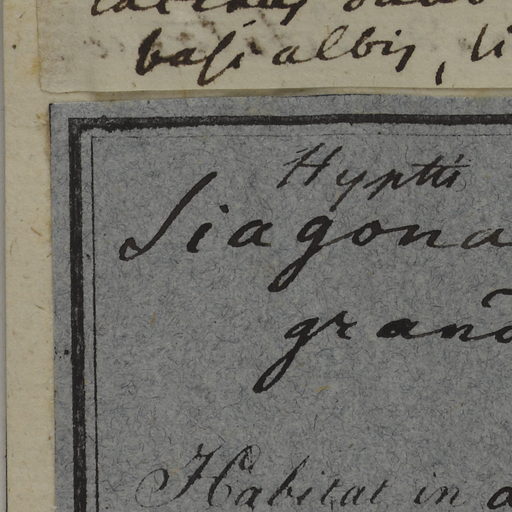 basi albis, li
Hyptis
Siagona
grand
Habitat in a